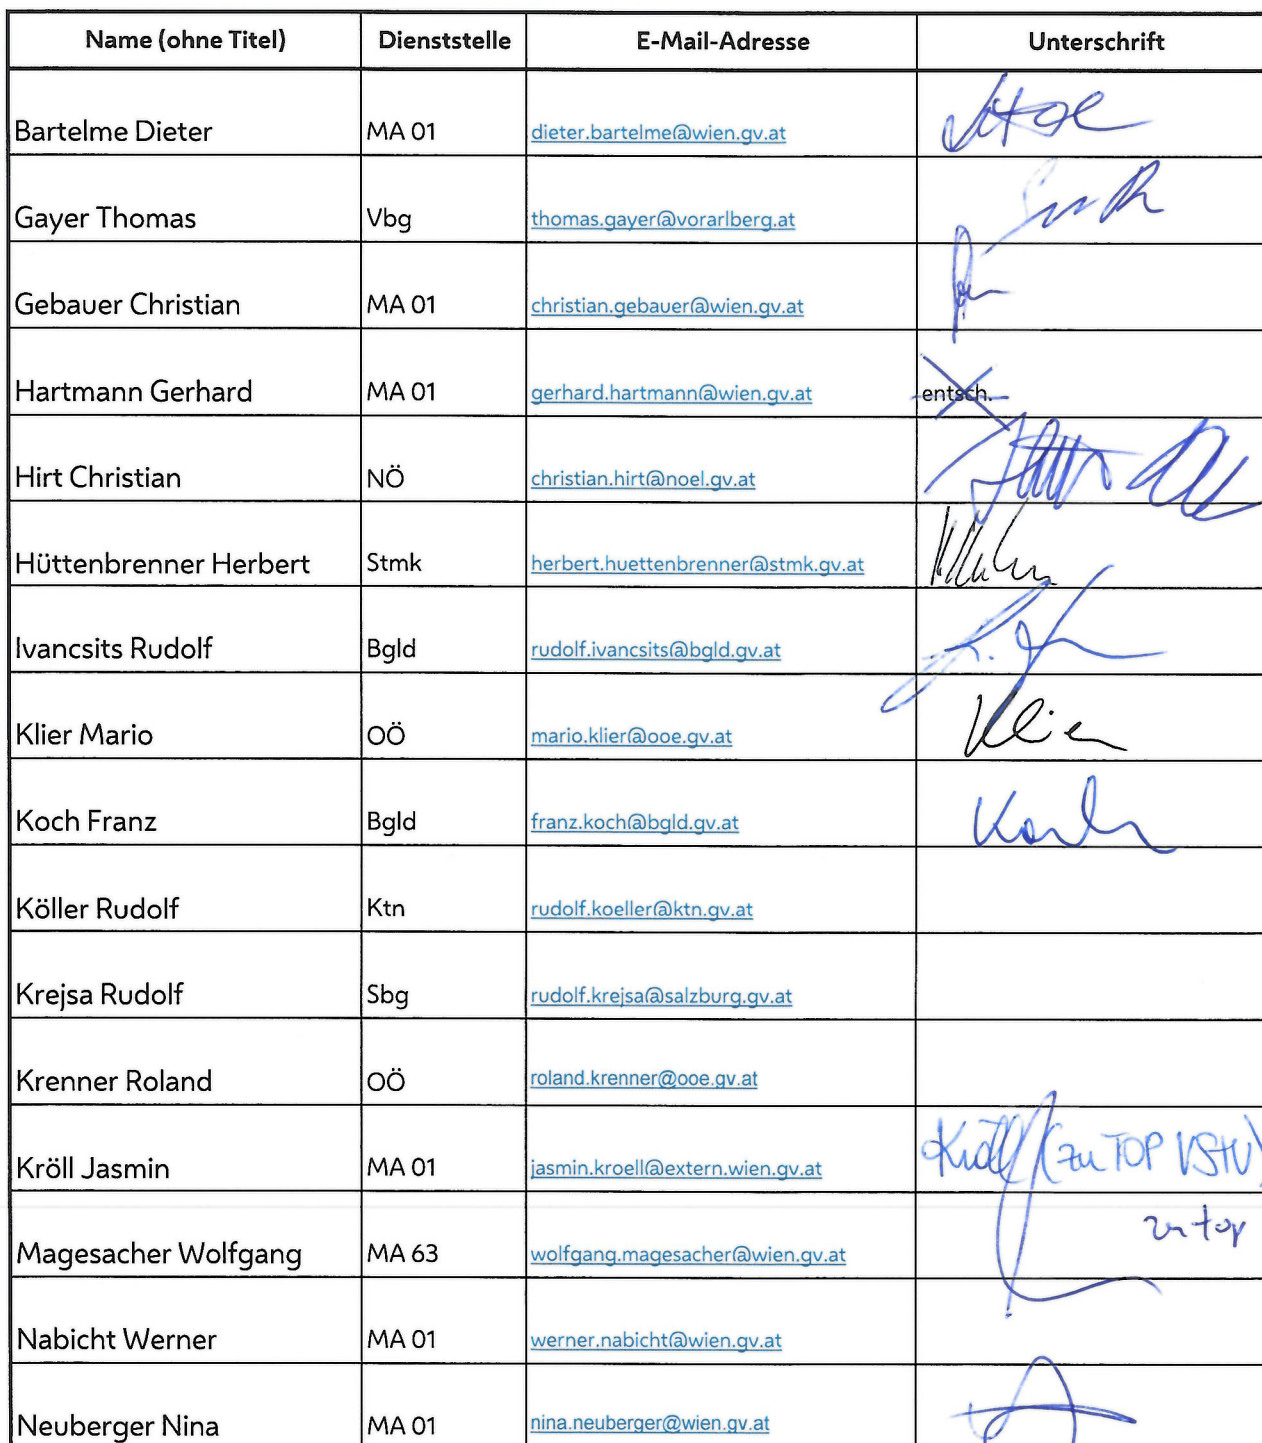 Name (ohne Titel) Dienststelle E-Mail-Adresse Unterschrift
Bartelme Dieter MA 01 dieter.bartelme@wien.gv.at
Gayer Thomas Vbg thomas.gayer@vorarlberg.at
Gebauer Christian MA 01 christian.gebauer@wien.gv.at
Hartmann Gerhard MA 01 gerhard.hartmann@wien.gv.at entsch.
Hirt Christian NÖ christian.hirt@noel.gv.at
Hüttenbrenner Herbert Stmk herbert.huettenbrenner@stmk.gv.at
Ivancsits Rudolf Bgld rudolf.ivancsits@bgld.gv.at
Klier Mario OÖ mario.klier@ooe.gv.at Klier
Koch Franz Bgld franz.koch@bgld.gv.at
Köller Rudolf Ktn rudolf.koeller@ktn.gv.at
Krejsa Rudolf Sbg rudolf.krejsa@salzburg.gv.at
Krenner Roland OÖ roland.krenner@ooe.gv.at
Kröll Jasmin MA 01 jasmin.kroell@extern.wien.gv.at Kröll (zu TOP VStV)
Magesacher Wolfgang MA 63 wolfgang.magesacher@wien.gv.at zu top
Nabicht Werner MA 01 werner.nabicht@wien.gv.at
Neuberger Nina MA 01 nina.neuberger@wien.gv.at